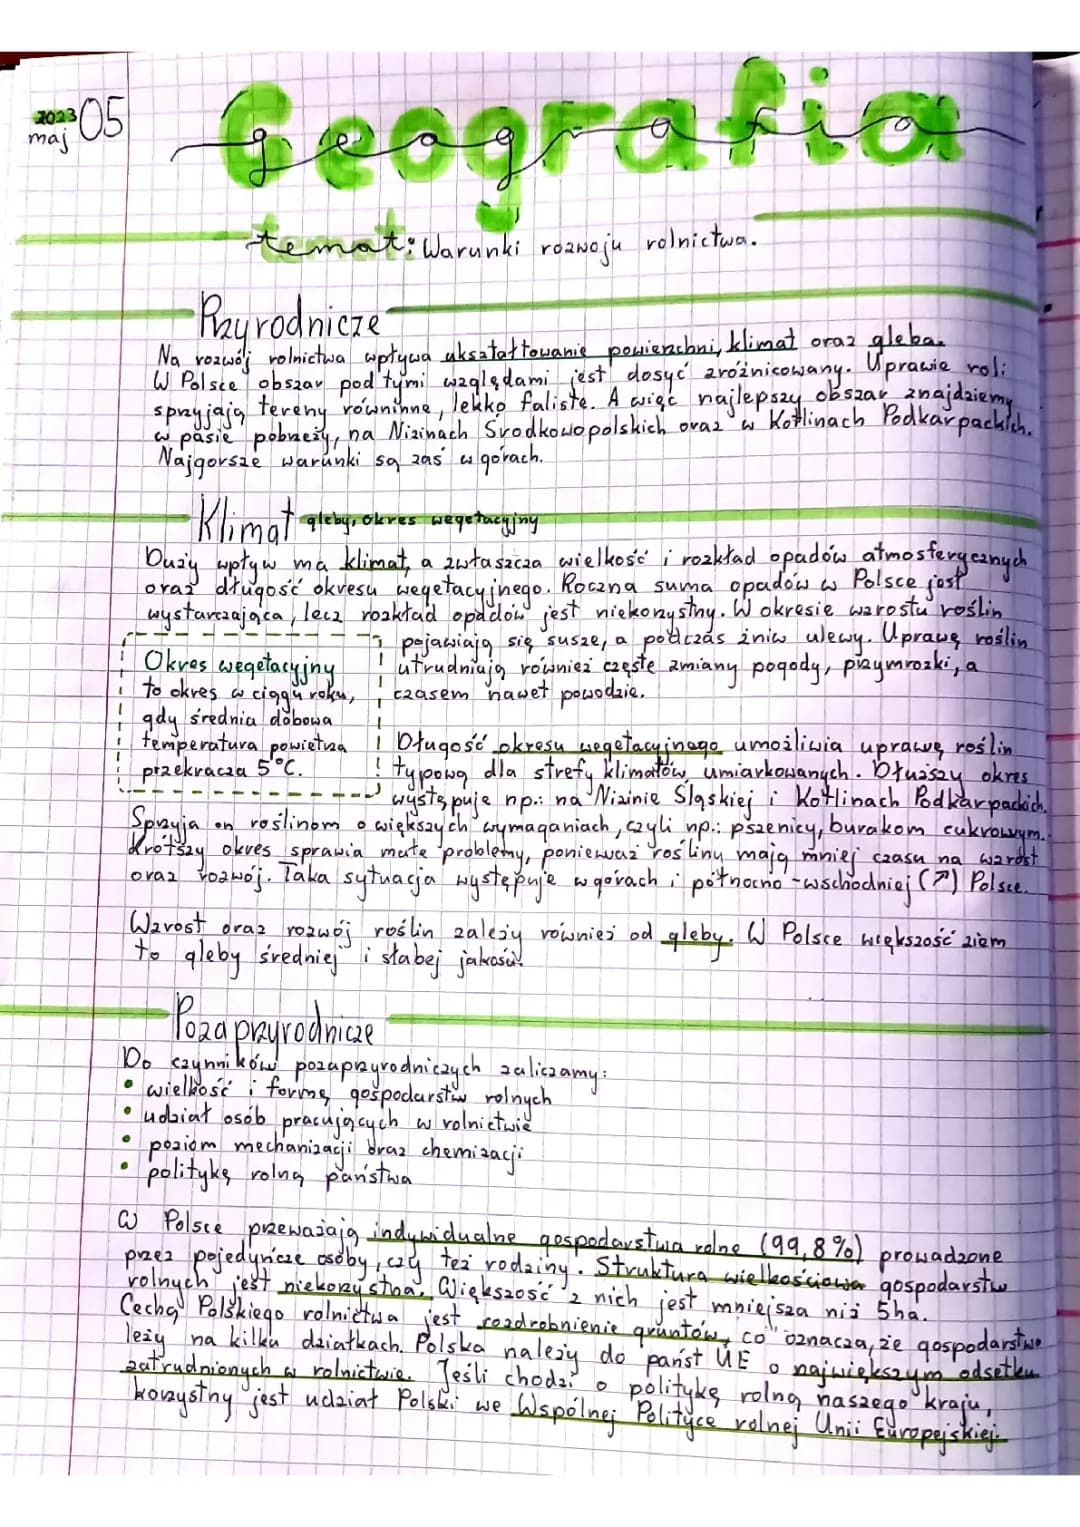 2023 05
maj
Geografia
temat: Warunki rozwoju rolnictwa.
Przyrodnicze
Na rozwój rolnictwa wpływa ukształtowanie powierzchni, klimat oraz gleba.
W Polsce obszar pod tymi względami jest dosyć zróżnicowany. Uprawie roli
sprzyjają tereny równinne, lekko faliste. A więc najlepszy obszar znajdziemy
w pasie pobrzeży, na Nizinach Środkowopolskich oraz w Kotlinach Podkarpackich.
Najgorsze warunki są zaś w górach.
Klimat gleby, okres wegetacyjny
Duży wpływ ma klimat, a zwłaszcza wielkość i rozkład opadów atmosferycznych
oraz długość okresu wegetacyjnego. Roczna suma opadów w Polsce jest
wystarczająca, lecz rozkład opadów jest niekorzystny. W okresie wzrostu roślin
pojawiają się susze, a podczas żniw ulewy. Uprawę roślin
utrudniają również częste zmiany pogody, przymrozki, a
czasem nawet powodzie.
Okres wegetacyjny
to okres w ciągu roku,
gdy średnia dobowa
temperatura powietrza
przekracza 5°C.
Długość okresu wegetacyjnego umożliwia uprawę roślin
typową dla strefy klimatów umiarkowanych. Dłuższy okres
występuje np.: na Nizinie Śląskiej i Kotlinach Podkarpackich.
Sprzyja on roślinom o większych wymaganiach, czyli np.: pszenicy, burakom cukrowym.
Krótszy okres sprawia małe problemy, ponieważ rośliny mają mniej czasu na wzrost
oraz rozwój. Taka sytuacja występuje w górach i północno-wschodniej (↗) Polsce.
Wzrost oraz rozwój roślin zależy również od gleby. W Polsce większość ziem
to gleby średniej i słabej jakości.
Pozaprzyrodnicze
Do czynników pozaprzyrodniczych zaliczamy:
• wielkość i formę gospodarstw rolnych
• udział osób pracujących w rolnictwie
• poziom mechanizacji oraz chemizacji
• politykę rolną państwa
W Polsce przeważają indywidualne gospodarstwa rolne (99,8%) prowadzone
przez pojedyncze osoby, czy też rodziny. Struktura wielkościowa gospodarstw
rolnych jest niekorzystna. Większość z nich jest mniejsza niż 5ha.
Cechą Polskiego rolnictwa jest rozdrobnienie gruntów, co oznacza, że gospodarstwo
leży na kilku działkach. Polska należy do państ UE o największym odsetku
zatrudnionych w rolnictwie. Jeśli chodzi o politykę rolną naszego kraju,
korzystny jest udział Polski we Wspólnej Polityce rolnej Unii Europejskiej.